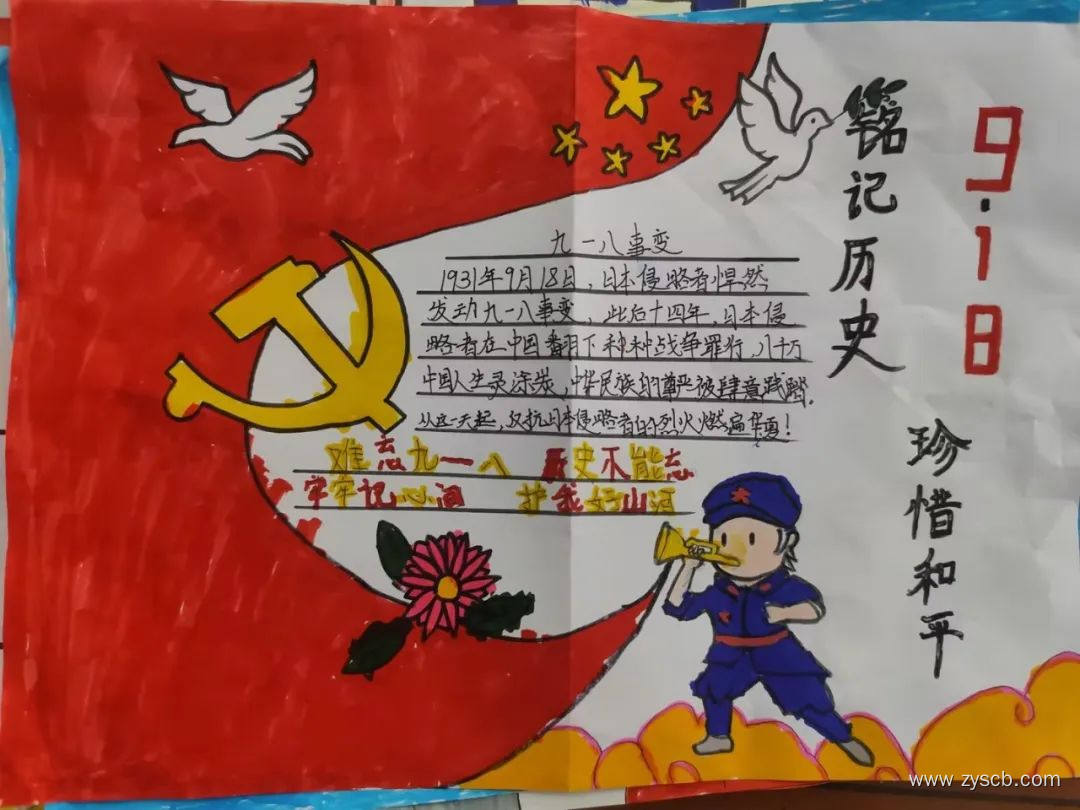 九一八事变
1931年9月18日，日本侵略者悍然
发动九一八事变，此后十四年，日本侵
略者在中国翻下种种战争罪行，八千万
中国人生灵涂炭，中华民族的尊严被肆意践踏。
从这一天起，反抗日本侵略者的烈火燃遍华夏！
难忘九一八 历史不能忘
牢牢记心间 护我好山河
铭记历史
珍惜和平
9.18
www.zyscb.com